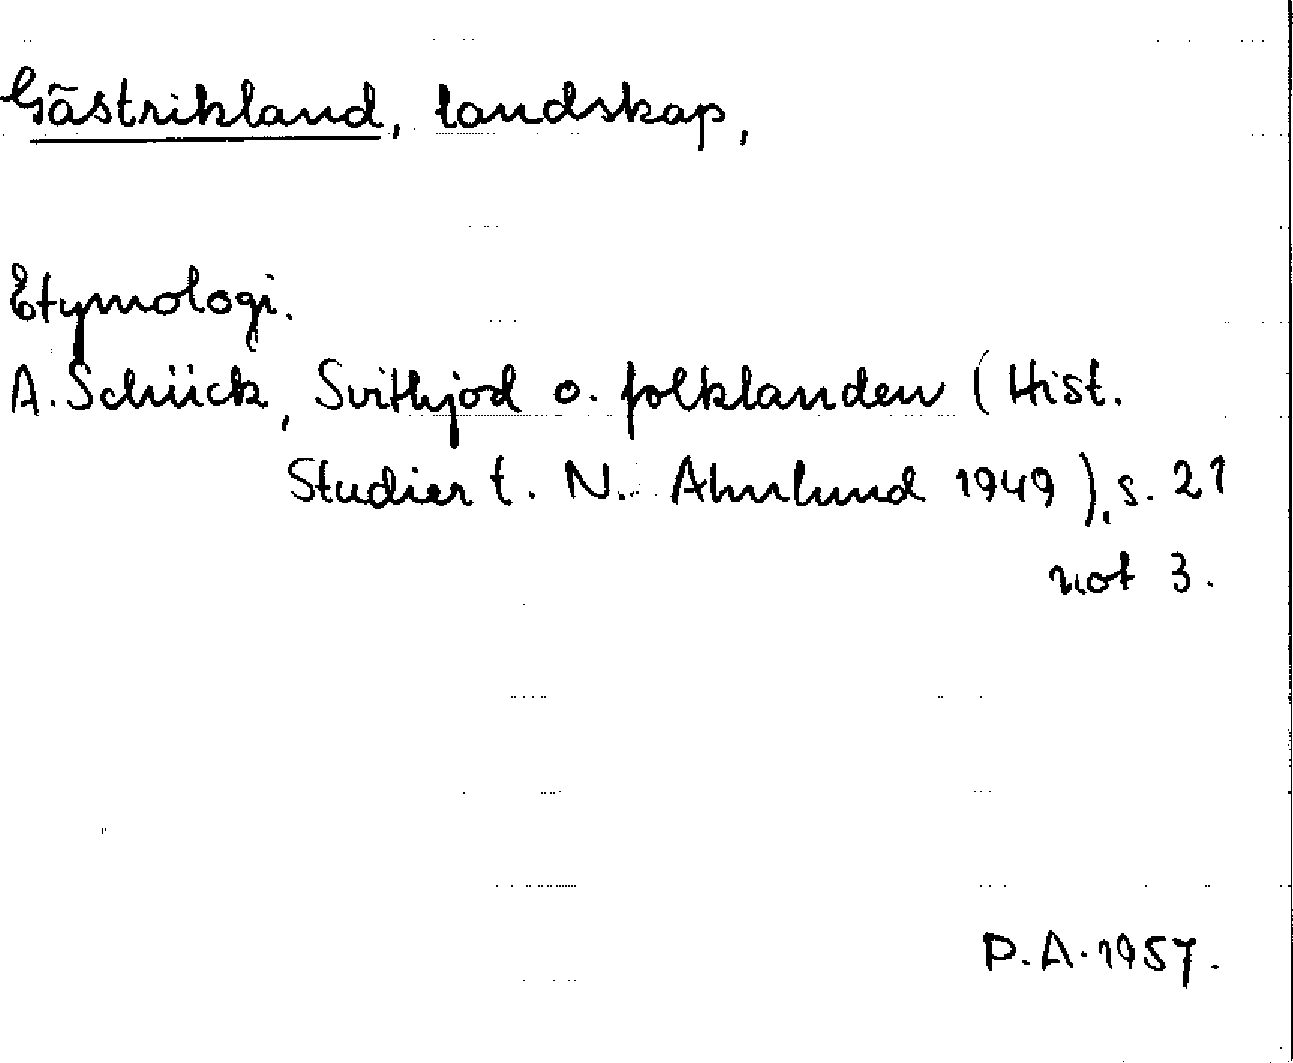 Gästrikland, landskap,
Etymologi.
A. Schück, Svithjod o. folklanden (Hist.
Studier t. N. Ahnlund 1949), s. 21
not 3.
P.A. 1957.